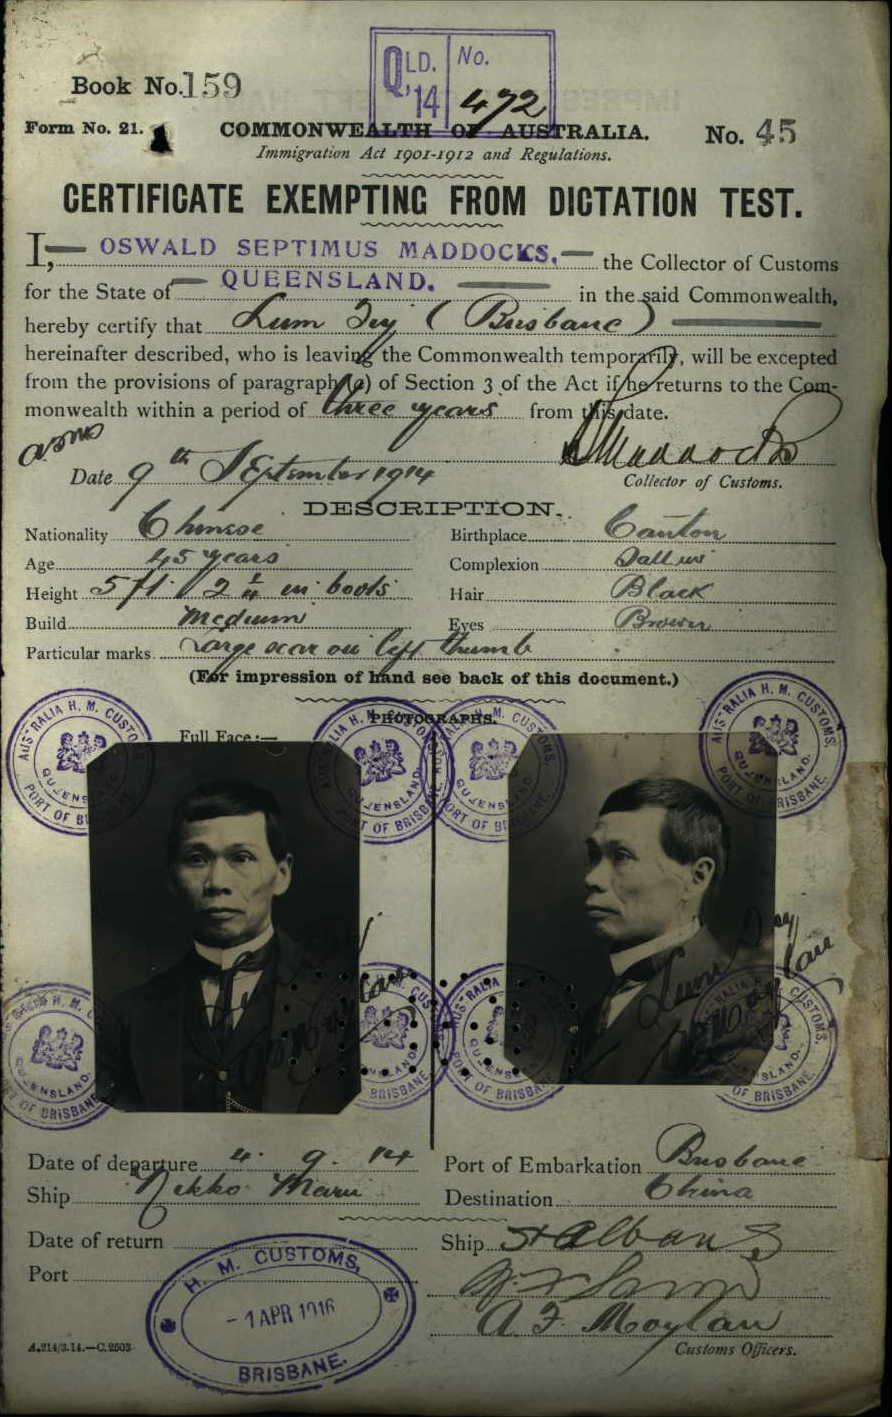 Book No. 159
QLD. '14 No. 472
Form No. 21.
COMMONWEALTH OF AUSTRALIA.
No. 45
Immigration Act 1901-1912 and Regulations.
CERTIFICATE EXEMPTING FROM DICTATION TEST.
I, OSWALD SEPTIMUS MADDOCKS, the Collector of Customs
for the State of QUEENSLAND. in the said Commonwealth,
hereby certify that Lum Tey (Brisbane)
hereinafter described, who is leaving the Commonwealth temporarily, will be excepted
from the provisions of paragraph (a) of Section 3 of the Act if he returns to the Com-
monwealth within a period of three years from this date.
Date 9th September 1914
Collector of Customs.
DESCRIPTION.
Nationality Chinese Birthplace Canton
Age 45 years Complexion Sallow
Height 5 ft. 2 1/4 in boots Hair Black
Build Medium Eyes Brown
Particular marks Large scar on left thumb
(For impression of hand see back of this document.)
PHOTOGRAPHS.
Full Face:—
AUSTRALIA H. M. CUSTOMS
QUEENSLAND.
PORT OF BRISBANE.
Date of departure 4. 9. 14 Port of Embarkation Brisbane
Ship Nikko Maru Destination China
Date of return Ship St Albans
Port
H. M. CUSTOMS,
- 1 APR 1916
BRISBANE.
A F Moylan
A.214/3.14.—C.2503
Customs Officers.